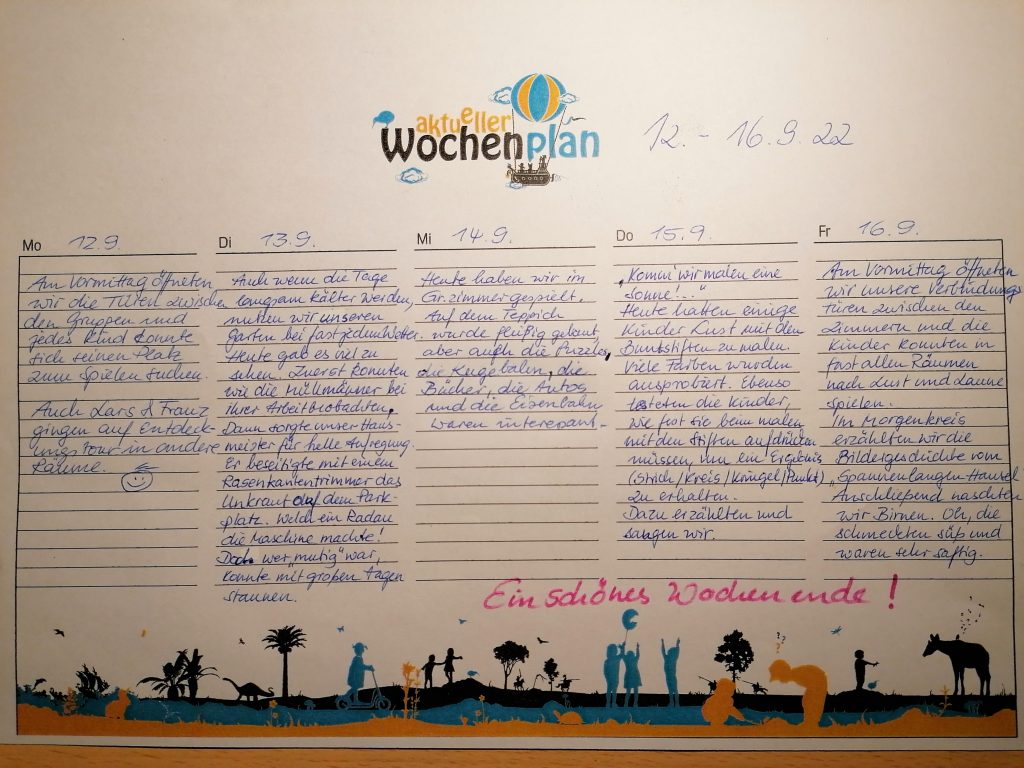 aktueller
Wochenplan
12. - 16.9.22
Mo 12.9.
Am Vormittag öffneten
wir die Türen zwischen
den Gruppen und
jedes Kind konnte
sich seinen Platz
zum Spielen suchen.
Auch Lars & Franz
gingen auf Entdeck-
ungstour in andere
Räume.
Di 13.9.
Auch wenn die Tage
langsam kälter werden,
nutzen wir unseren
Garten bei fast jedem Wetter.
Heute gab es viel zu
sehen. Zuerst konnten
wir die Müllmänner bei
ihrer Arbeit beobachten.
Dann sorgte unser Haus-
meister für helle Aufregung.
Er beseitigte mit einem
Rasenkantentrimmer das
Unkraut auf dem Park-
platz. Welch ein Radau
die Maschine machte!
Doch wer „mutig" war,
konnte mit großen Augen
staunen.
Mi 14.9.
Heute haben wir im
Gr.zimmer gespielt.
Auf dem Teppich
wurde fleißig gebaut,
aber auch die Puzzles,
die Kugelbahn, die
Bücher, die Autos
und die Eisenbahn
waren interessant.
Do 15.9.
„Komm' wir malen eine
Sonne!..."
Heute hatten einige
Kinder Lust mit den
Buntstiften zu malen.
Viele Farben wurden
ausprobiert. Ebenso
testeten die Kinder,
wie fest sie beim malen
mit den Stiften aufdrücken
müssen, um ein Ergebnis
(Strich/Kreis/Kringel/Punkt)
zu erhalten.
Dazu erzählten und
sangen wir.
Fr 16.9.
Am Vormittag öffneten
wir unsere Verbindungs
türen zwischen den
Zimmern und die
Kinder konnten in
fast allen Räumen
nach Lust und Laune
spielen.
Im Morgenkreis
erzählten wir die
Bildergeschichte vom
„Spannenlangen Hansel
Anschließend naschten
wir Birnen. Oh, die
schmeckten süß und
waren sehr saftig.
Ein schönes Wochenende!